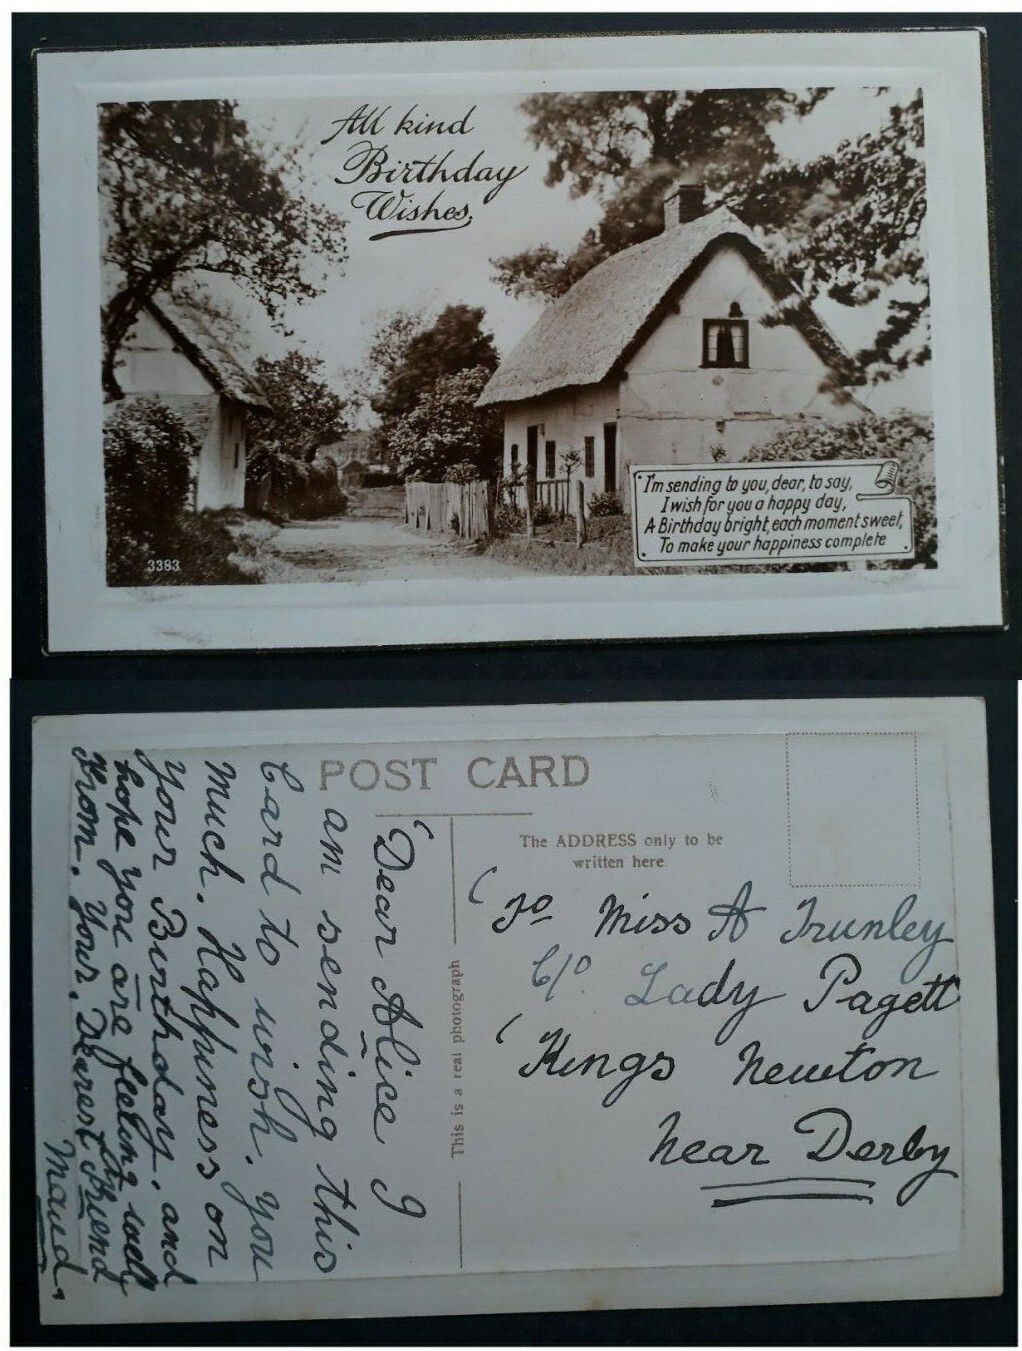 All kind
Birthday
Wishes.
I'm sending to you, dear, to say,
I wish for you a happy day,
A Birthday bright, each moment sweet,
To make your happiness complete
3383
POST CARD
The ADDRESS only to be
written here.
This is a real photograph
Dear Alice I
am sending this
Card to wish. you
much. Happiness on
your Birthday. and
hope you are feeling well
From. Your. Dearest Friend
Maud.
To Miss A Trunley
C/o Lady Pagett
Kings Newton
Near Derby